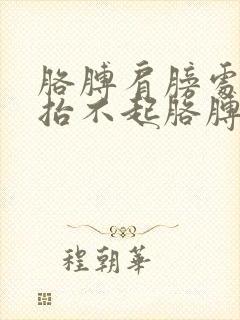 胳膊肩膀需
抬不起胳膊
程朝华